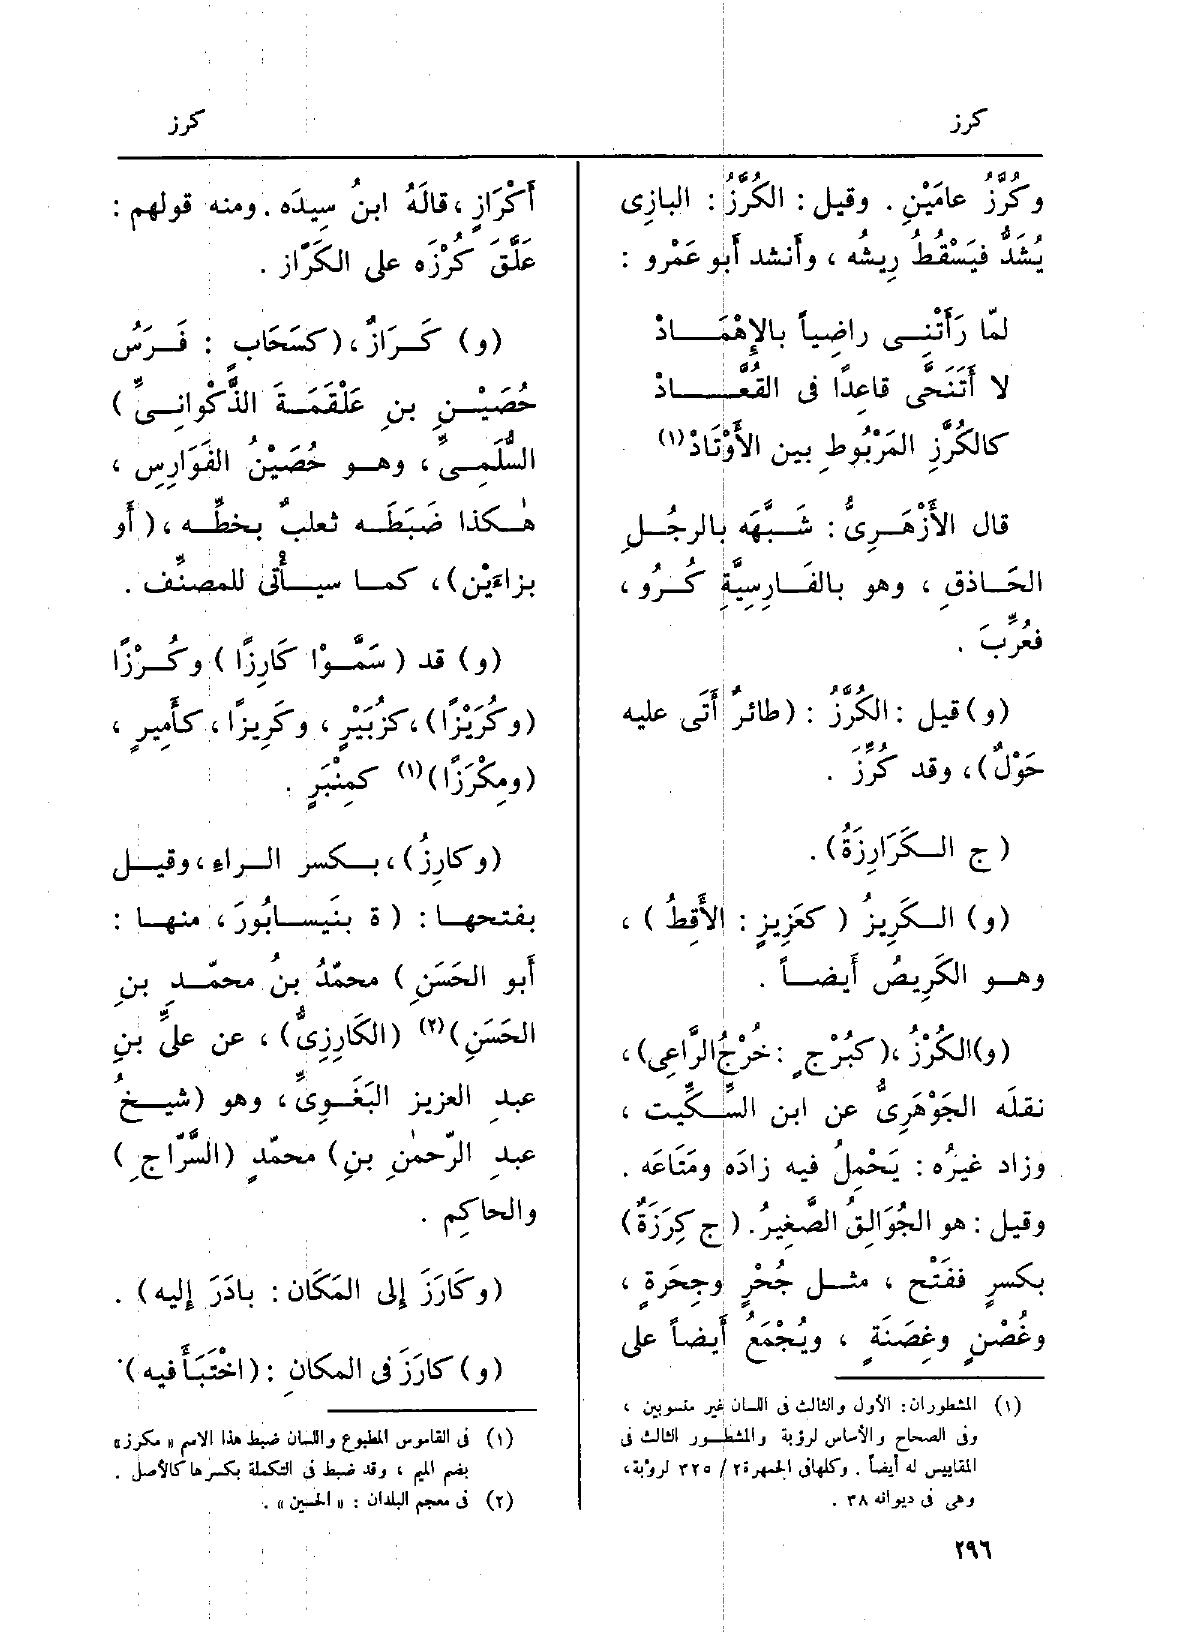 كرز
كرز
وكُرَّزُ عامَيْنِ . وقيل : الكُرَّزُ : البازِى
يُشَدُّ فيَسْقُطُ رِيشُه ، وأَنشد أَبو عَمْرو :
لمّا رَأَتْنِى راضِياً بالإِهْمَادْ
لا أَتَنَحَّى قاعِدًا فى القُعَّادْ
كالكُرَّزِ المَرْبُوطِ بين الأَوْتَادْ (١)
قال الأَزْهَرِىُّ : شَبَّهَه بالرجُلِ
الحَاذقِ ، وهو بالفَارِسِيَّةِ كُرُو ،
فعُرِّبَ .
(و) قيل : الكُرَّزُ : (طائرٌ أَتَى عليه
حَوْلٌ) ، وقد كُرِّزَ .
(ج الكَرَارِزَةُ) .
(و) الكَرِيزُ ( كعَزِيزٍ : الأَقِطُ ) ،
وهو الكَرِيصُ أَيضاً .
(و)الكُرْزُ ، (كبُرْجٍ : خُرْجُ الرَّاعِى) ،
نقلَه الجَوْهَرِىُّ عن ابن السِّكِّيت ،
وزاد غيرُه : يَحْمِلُ فيه زادَه ومَتَاعَه .
وقيل : هو الجُوَالِقُ الصَّغِيرُ . (ج كِرَزَةٌ)
بكسرٍ ففَتْح ، مثل جُحْرٍ وجِحَرةٍ ،
وغُصْنٍ وغِصَنَةٍ ، ويُجْمَعُ أَيضاً على
(١) المشطوران : الأول والثالث فى اللسان غير منسوبين ،
وفى الصحاح والأساس لرؤبة والمشطور الثالث فى
المقاييس له أيضاً . وكلها فى الجمهرة ٢ / ٣٢٥ لرؤبة ،
وهى فى ديوانه ٣٨ .
أَكْرَازٍ ، قالَهُ ابنُ سِيدَه . ومنه قولهم :
عَلَّقَ كُرْزَه على الكَرّاز .
(و) كَرَازٌ ، (كسَحَابٍ : فَرَسُ
حُصَيْنِ بنِ عَلْقَمَةَ الذَّكْوانِىِّ)
السُّلَمِىِّ ، وهو حُصَيْنُ الفَوَارِسِ ،
هٰكذا ضَبَطَه ثعلبٌ بخطِّه ، (أَو
بزاءَيْن) ، كما سيأْتى للمصنِّف .
(و) قد (سَمَّوْا كَارِزًا) وكُرْزًا
(وكُرَيْزًا) ، كزُبَيْرٍ ، وكَرِيزًا ، كأَمِيرٍ ،
(ومِكْرَزًا) (١) كمِنْبَرٍ .
(وكارِزُ) ، بكسر الراء ، وقيل
بفتحها : (ة بنَيسابُورَ ، منها :
أَبو الحَسَنِ) محمّدُ بنُ محمّدِ بنِ
الحَسَنِ) (٢) (الكَارِزِىُّ) ، عن علىِّ بنِ
عبدِ العزيز البَغَوِىِّ ، وهو (شيخُ
عبدِ الرّحمٰنِ بنِ) محمّدٍ (السَّرّاجِ)
والحاكِم .
(وكَارَزَ إِلى المَكَان : بادَرَ إِليه) .
(و) كارَزَ فى المكانِ : (اخْتَبَأَ فيه) .
(١) فى القاموس المطبوع واللسان ضبط هذا الاسم « مكرز »
بضم الميم ، وقد ضبط فى التكملة بكسرها كالأصل .
(٢) فى معجم البلدان : « الحسين » .
٢٩٦